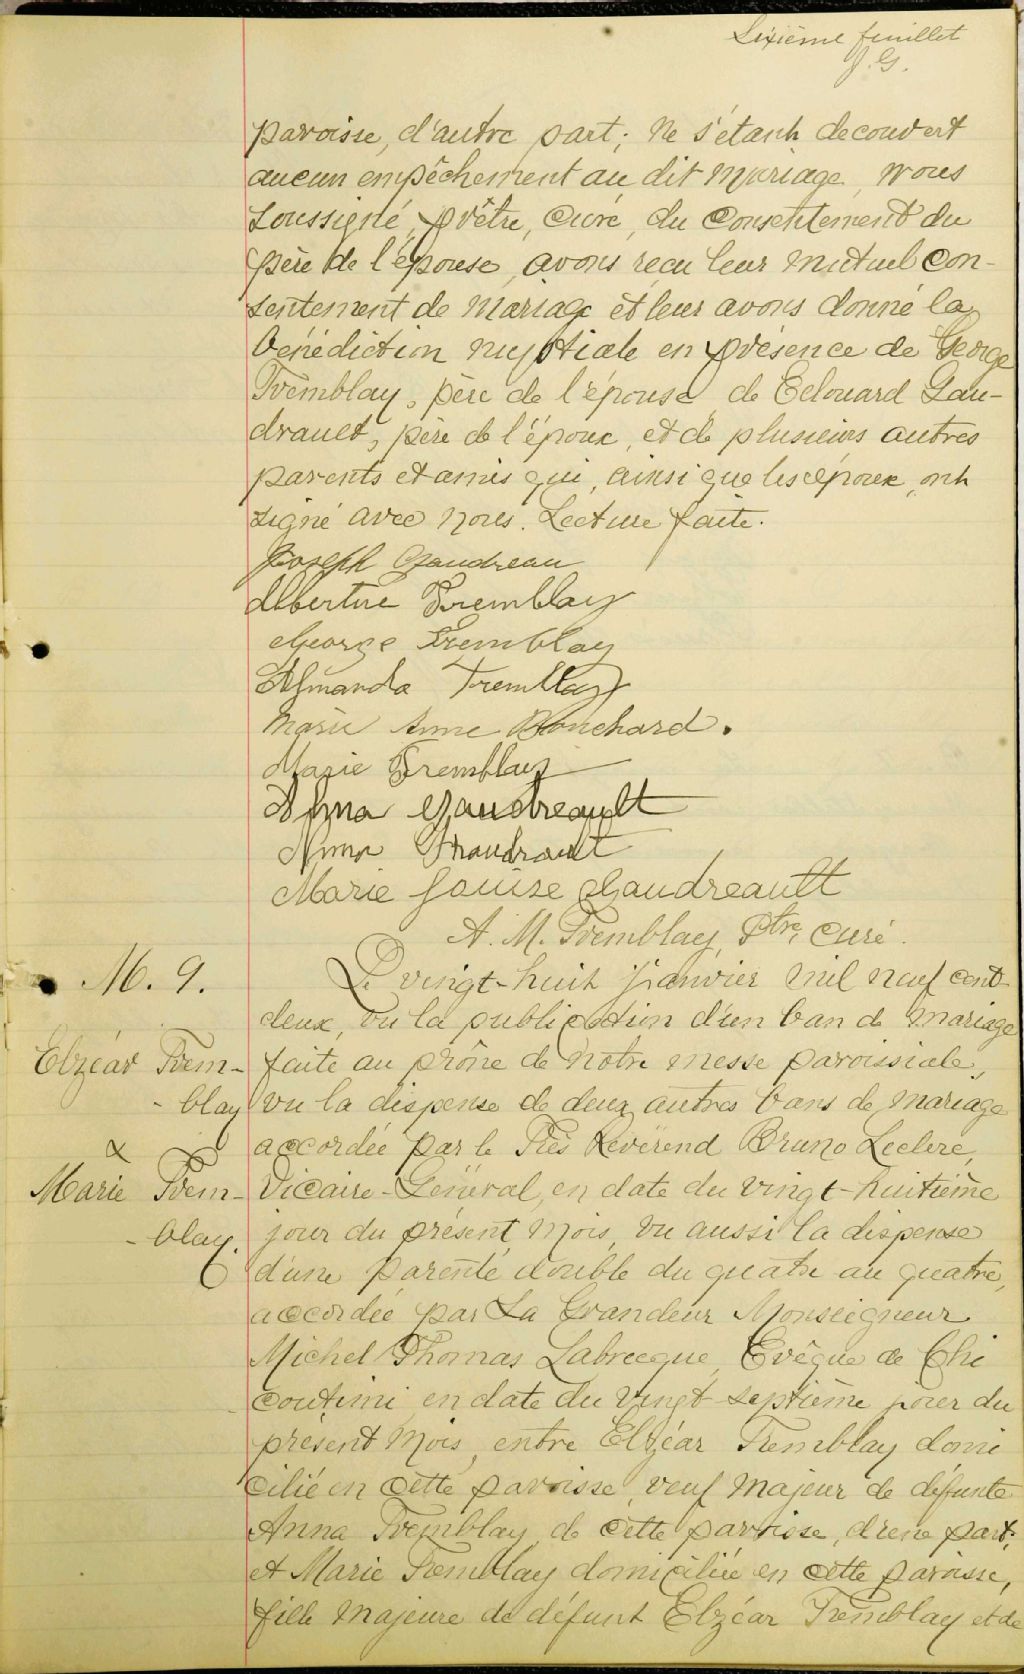 Sixième feuillet
J. G.
paroisse, d'autre part; ne s'étant decouvert
aucun empêchement au dit mariage, nous
soussigné, prêtre, curé, du consentement du
père de l'épouse, avons reçu leur mutuel con-
sentement de mariage et leur avons donné la
bénédiction nuptiale en présence de George
Tremblay, père de l'épouse, de Edouard Gau-
drault, père de l'époux, et de plusieurs autres
parents et amis qui, ainsi que les époux, ont
signé avec nous. Lecture faite.
Joseph Gaudreau
Albertine Tremblay
George Tremblay
Almanda Tremblay
Marie Anne Bouchard.
Marie Tremblay
Alma Gaudreault
Anna Gaudrault
Marie Louise Gaudreault
A. M. Tremblay, Ptre, curé.
M. 9.
Elzéar Trem-
- blay
&
Marie Trem-
- blay.
Le vingt-huit janvier mil neuf cent
deux, vu la publication d'un ban de mariage
faite au prône de notre messe paroissiale,
vu la dispense de deux autres bans de mariage
accordée par le Très Révérend Bruno Leclerc,
Vicaire-Général, en date du vingt-huitième
jour du présent mois, vu aussi la dispense
d'une parenté double du quatre au quatre,
accordée par Sa Grandeur Monseigneur
Michel Thomas Labrecque, Evêque de Chi
coutimi, en date du vingt-septième jour du
présent mois, entre Elzéar Tremblay domi
cilié en cette paroisse, veuf majeur de défunte
Anna Tremblay, de cette paroisse, d'une part;
et Marie Tremblay domiciliée en cette paroisse,
fille majeure de défunt Elzéar Tremblay et de